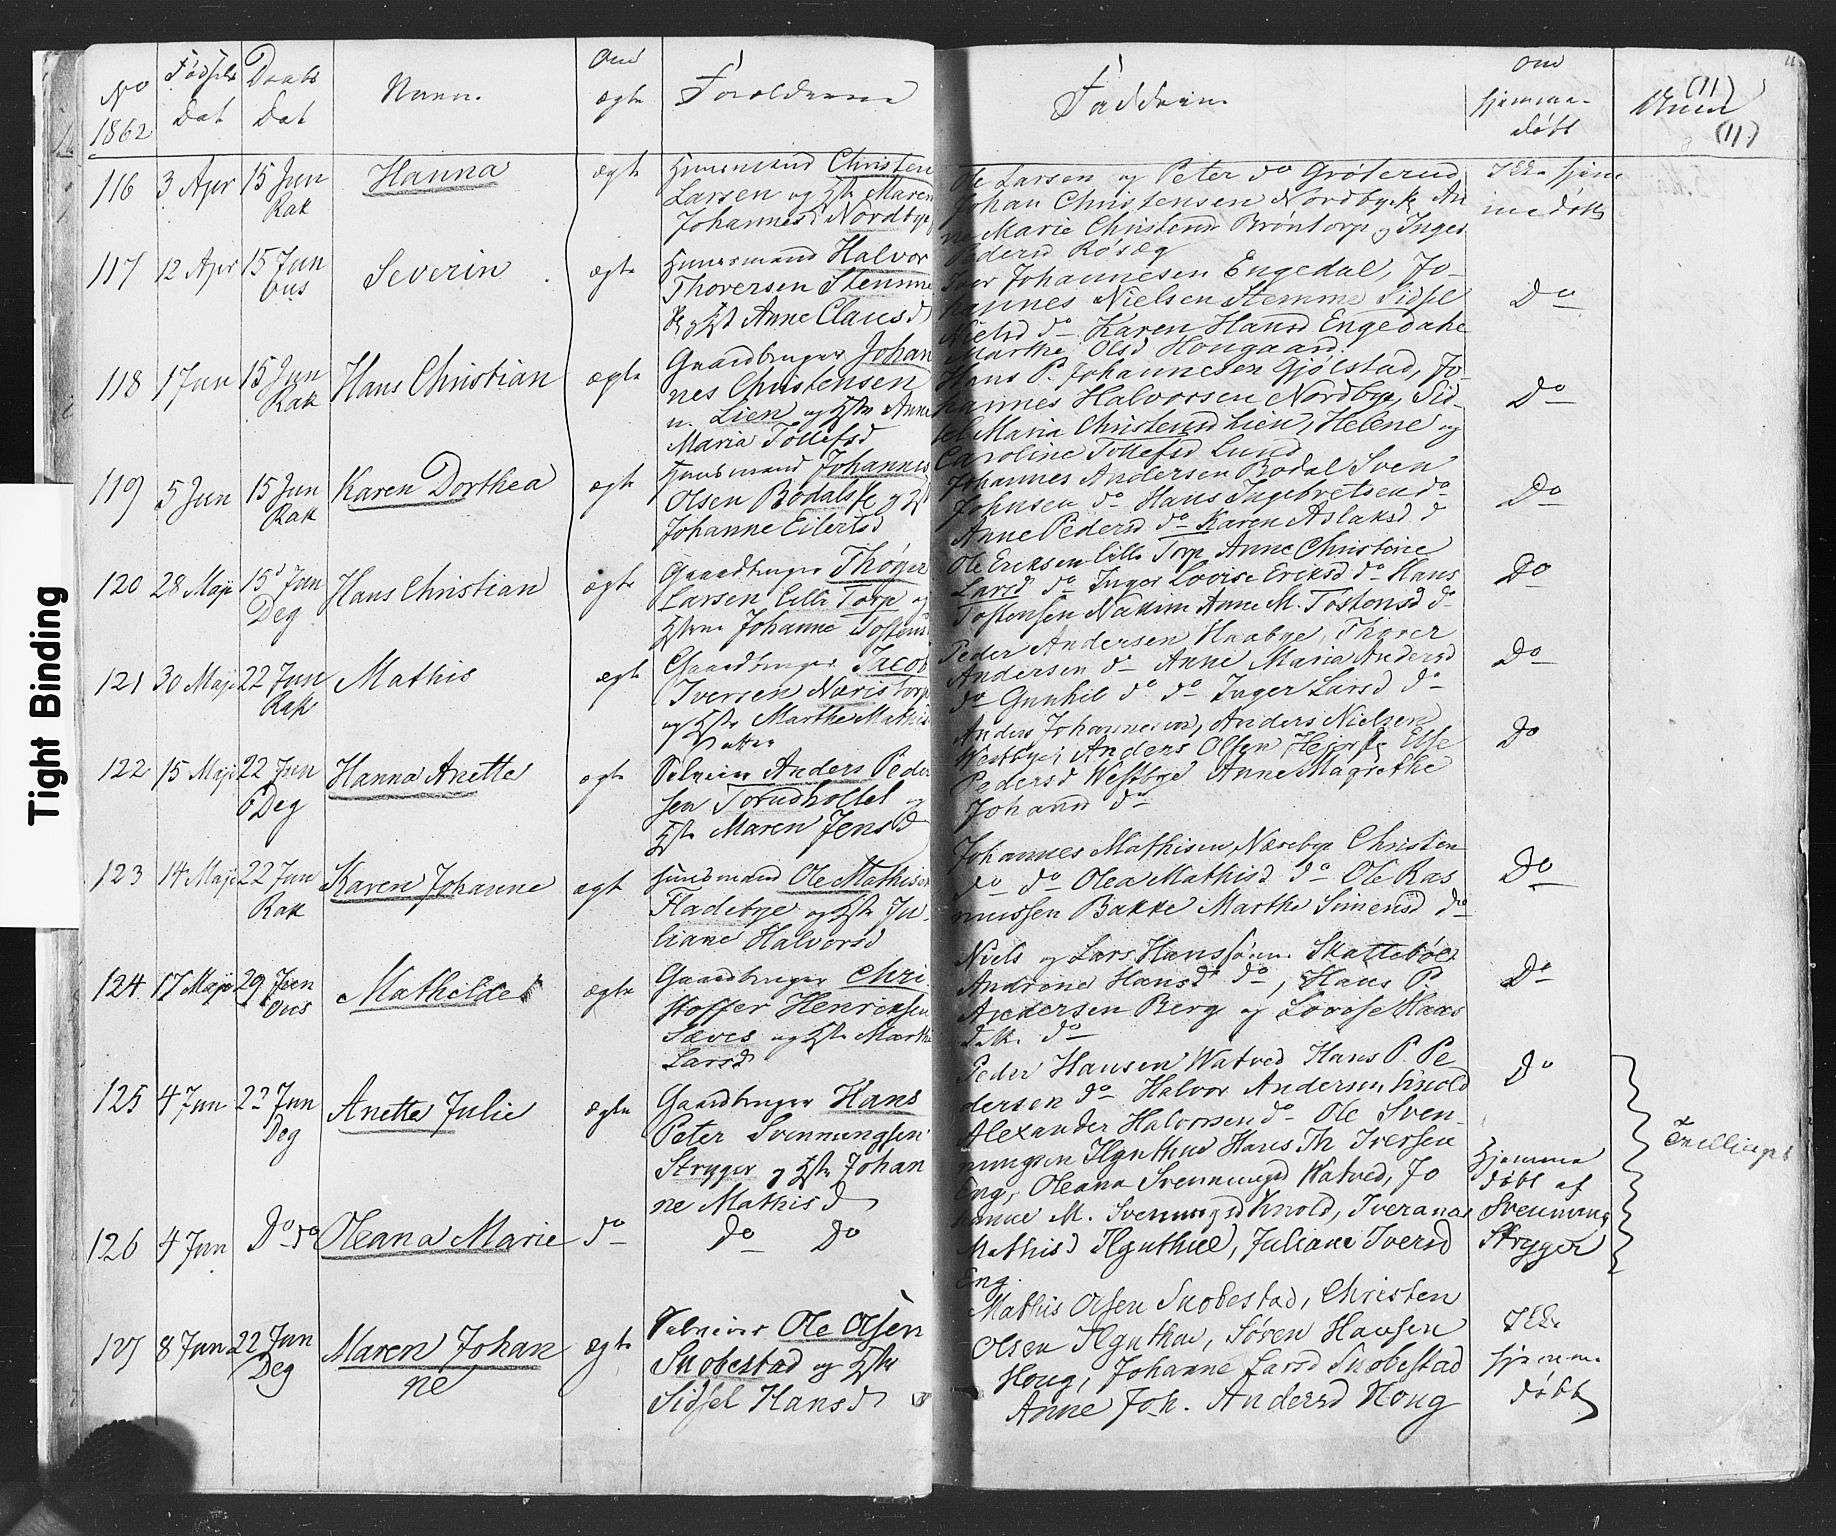 No
1862
Fødsels
Dat
Daabs
Dat
Navn.
Om
ægte
Forældrene
Faddere
Om
hjemme-
døbt
(11)
(11)
116 3 Apr 15 Jun
Rak
Hanna
ægte
Huusmand Christen
Larsen og Hst Maren
Johannesd Nordbye
Ole Larsen og Peter do Grøterud
Johan Christensen Nordbye An
ne Marie Christensd Brøntorp og Inger
Pedersd Røsæg
Ikke hjem
medøbt
117 12 Apr 15 Jun
Ous
Severin
ægte
Huusmand Halvor
Thoversen Stemme
og Hst Anne Clausd
Thor Johannesen Engedal, Jo-
hannes Nielsen Stemme Sidsel
Nielsd do Karen Hansd Engedahl
Marthe Olsd Hougaard.
Do
118 1 Jun 15 Jun
Rak
Hans Christian
ægte
Gaardbruger Johan
nes Christensen
n. Lien og Hst Anne
Maria Tollefsd
Hans P. Johannesen Gjølstad, Jo-
hannes Halvorsen Nordbye, Sid-
sel Maria Christensd Lien, Helene og
Caroline Tollefsd Lund
Do
119 5 Jun 15 Jun
Rak
Karen Dorthea
ægte
Huusmand Johannes
Olsen Bodalsk og Hst
Johanne Eilertsd
Johannes Andersen Bodal Sven
Johnsen do Hans Ingebretsen do
Anne Pedersd do Karen Aslaksd d
Do
120 28 Maji 15 Jun
Deg
Hans Christian
ægte
Gaardbruger Thøger
Larsen Lille Torp og
Hstru Johanne Tostensd
Ole Eriksen Lille Torp, Anne Christine
Larsd do Inger Lovise Eriksd do Hans
Tostensen Nakim Anne M. Tostensd do
Do
121 30 Maji 22 Jun
Rak
Mathis
ægt
Gaardbruger Jacob
Iversen Næristorp
og Hst Marthe Mathis
datter
Peder Andersen Haabye, Thorer
Andersen do Anne Maria Andersd
do Gunhil do do Inger Larsd do
Do
122 15 Maji 22 Jun
Deg
Hanna Anette
ægte
Selveier Anders Peder
sen Torudholtet og
Hst Maren Jensd
Anders Johannesen, Anders Nielsen
Westbye, Anders Olsen Else
Pedersd Westbye Anne Magrethe
Johansd do
Do
123 14 Maji 22 Jun
Rak
Karen Johanne
ægt
Huusmand Ole Mathisen
Fladebye og Hst Ju-
liane Halvorsd
Johannes Mathisen Næsebye Christen
do do Olea Mathisd do Ole Ras
mussen Bakke Marthe Simensd do
Do
124 17 Maji 29 Jun
Ous
Mathilde
ægte
Gaardbruger Chri
stoffer Henriksen
Sævis og Hst Marthe
Larsd
Niels og Lars Hanssøner Skattebøl
Andrine Hansd do, Hans P.
Andersen Berg og Lovise Hans
datt. do
Do
125 4 Jun 22 Jun
Deg
Anette Julie
ægte
Gaardbruger Hans
Peter Svenningsen
Stryger og Hst Johan
ne Mathisd
Peder Hansen Watved Hans P. Pe
dersen do Halvor Andersen Knold
Alexander Halvorsen do Ole Sven-
ningsen Ilguthue Hans Th Iversen
Eng, Oleana Svenningsd Watved, Jo
hanne M. Svenningsd Knold, Iverana
Mathisd Ilguthue, Juliane Iversd
Eng.
Do
126 4 Jun Do do Oleana Marie do
Do Do
Hjemme
døbt af
Svenning
Stryger
Tvillinger
127 8 Jun 22 Jun
Deg
Maren Johan
ne
ægte
Selveier Ole Olsen
Snobestad og Hst
Sidsel Hansd
Mathis Olsen Snobestad, Christen
Olsen Ilguthue, Søren Hansen
Houg, Johanne Larsd Snobestad
Anne Joh. Andersd Houg
Ikke
hjemme
døbt
Tight Binding